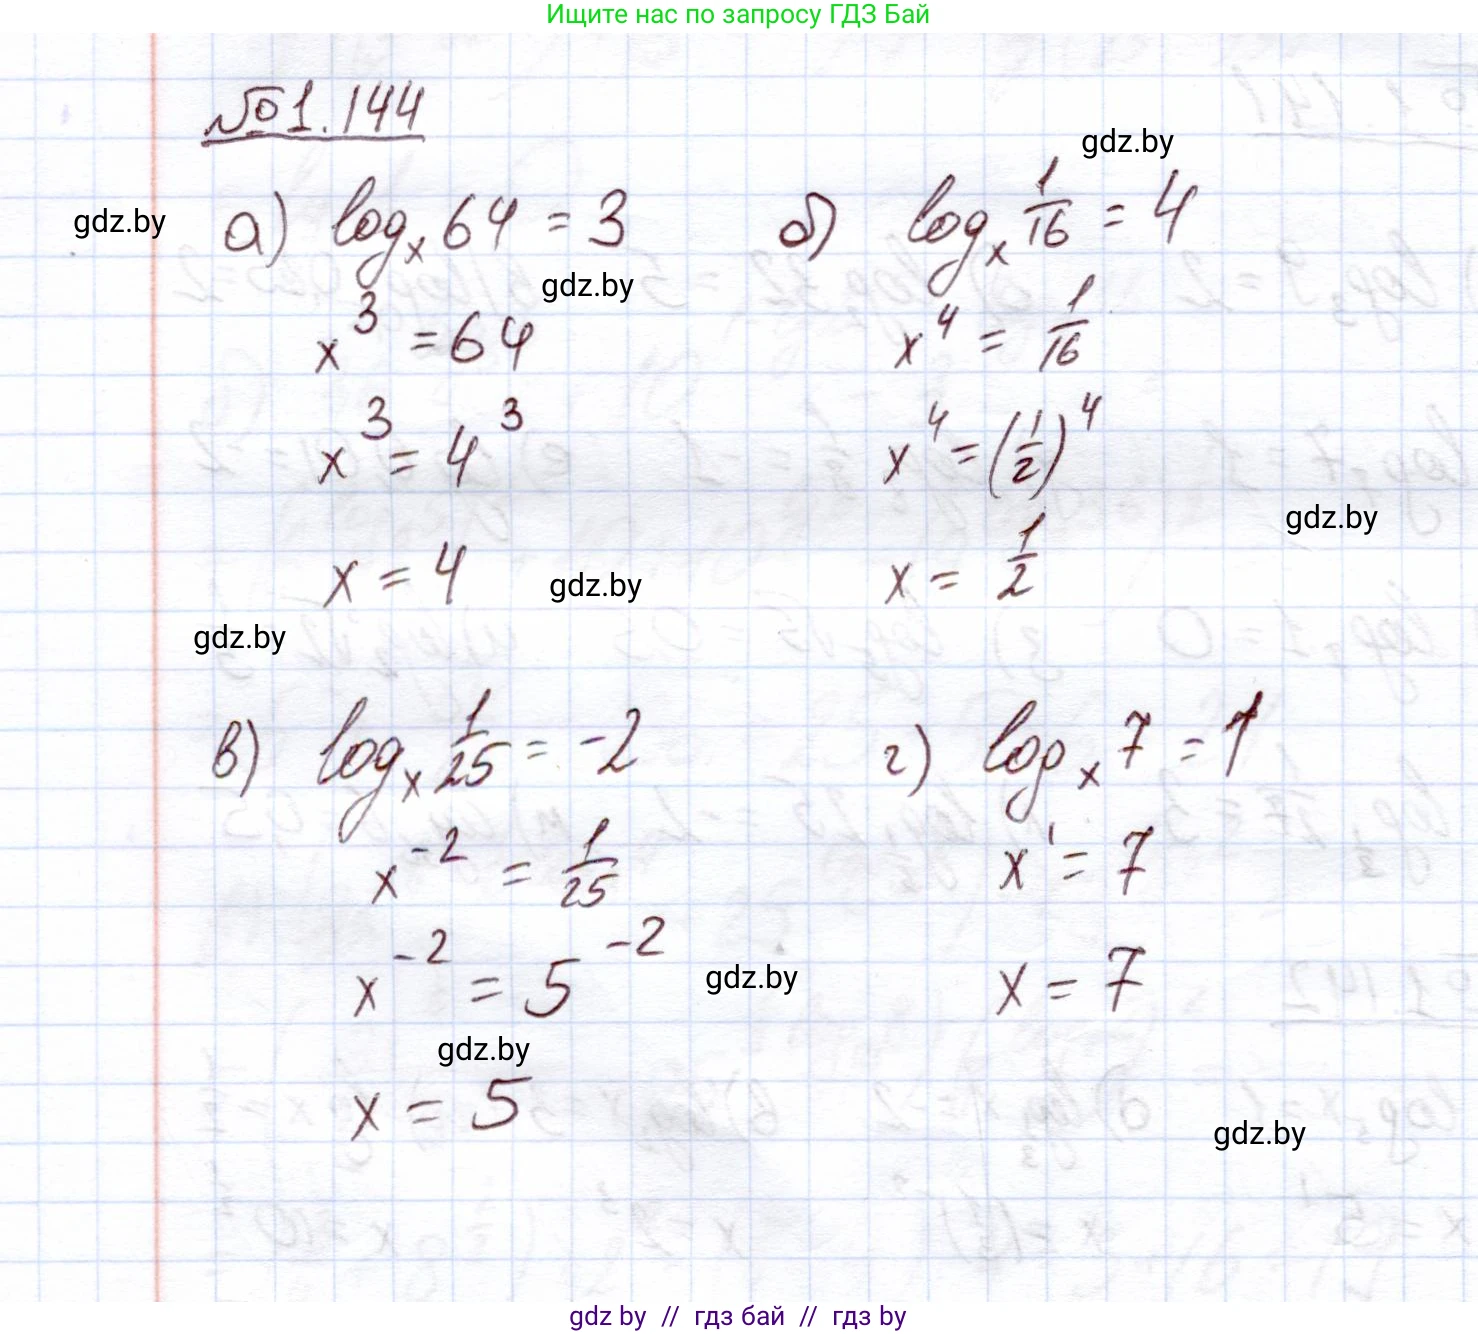 Ищите нас по запросу ГДЗ Бай
№1.144
gdz.by
а) log_x 64 = 3
x^3 = 64
x^3 = 4^3
x = 4
б) log_x 1/16 = 4
x^4 = 1/16
x^4 = (1/2)^4
x = 1/2
gdz.by
gdz.by
gdz.by
gdz.by
gdz.by
в) log_x 1/25 = -2
x^-2 = 1/25
x^-2 = 5^-2
x = 5
г) log_x 7 = 1
x^1 = 7
x = 7
gdz.by
gdz.by
gdz.by
gdz by // гдз бай // гдз by